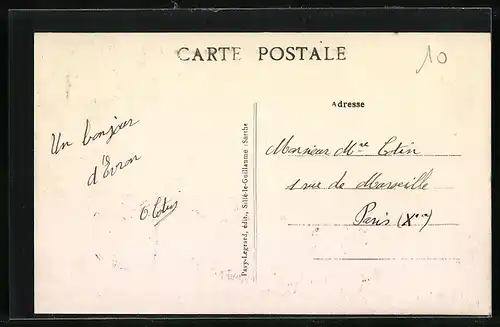 CARTE POSTALE
10
Un bonjour
d'Evron
O Cotin
Pavy-Legeard, édit., Sillé-le-Guillaume (Sarthe)
Adresse
Monsieur Mme Cotin
1 rue de Marseille
Paris (Xme)